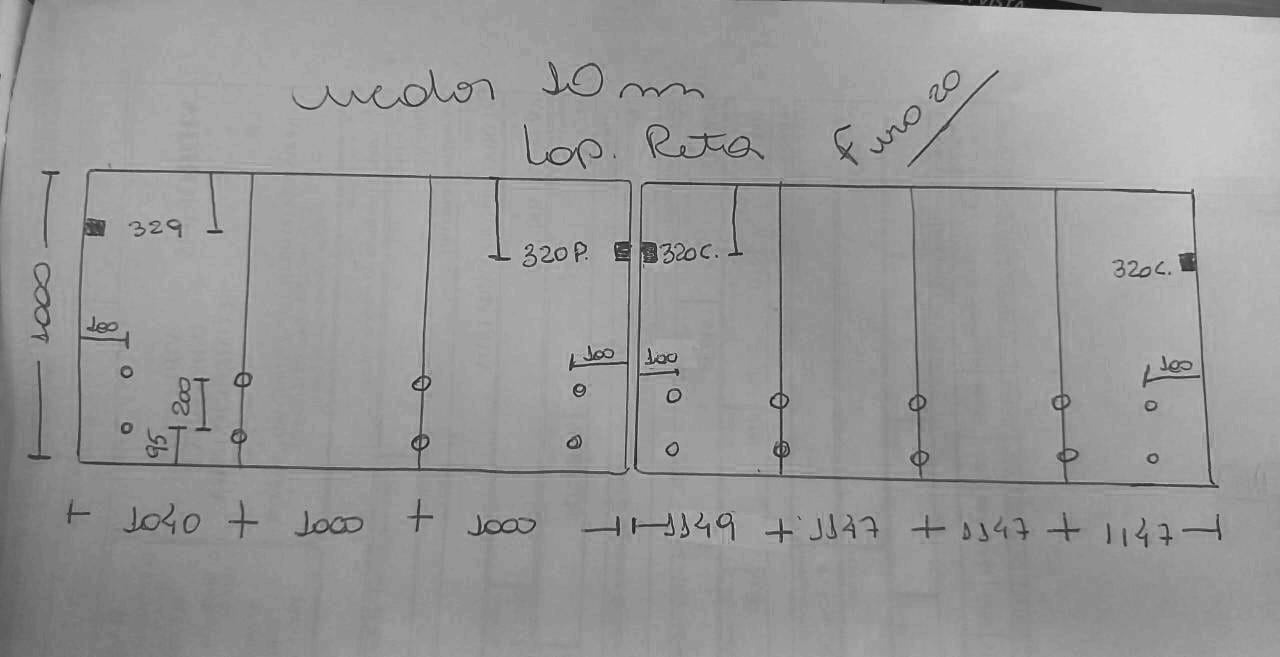 incolor 10 mm
Lap. Reta Furo 20
329
320P.
320C.
320C.
1000
100
100
100
100
200
95
1040 1000 1000 1149 1147 1147 1147